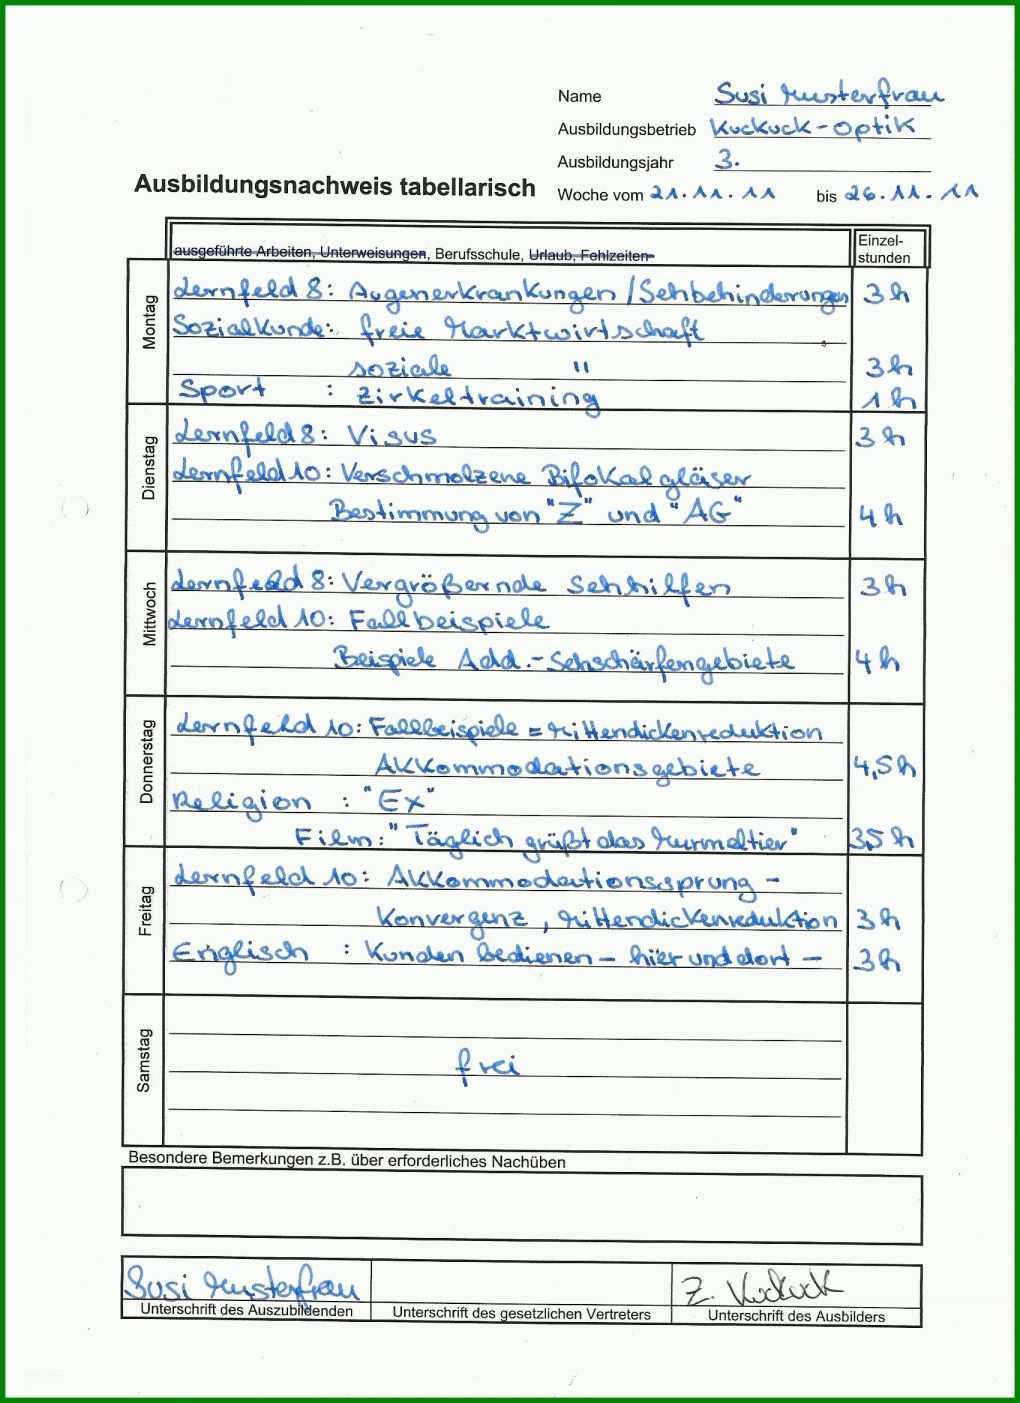 Name Susi Musterfrau
Ausbildungsbetrieb Kuckuck-Optik
Ausbildungsjahr 3.
Ausbildungsnachweis tabellarisch
Woche vom 21.11.11 bis 26.11.11
ausgeführte Arbeiten, Unterweisungen, Berufsschule, Urlaub, Fehlzeiten
Einzel-
stunden
Montag
Lernfeld 8: Augenerkrankungen / Sehbehinderungen 3h
Sozialkunde: freie Marktwirtschaft
soziale " 3h
Sport : Zirkeltraining 1h
Dienstag
Lernfeld 8: Visus 3h
Lernfeld 10: Verschmolzene Bifokalgläser
Bestimmung von "Z" und "AG" 4h
Mittwoch
Lernfeld 8: Vergrößernde Sehhilfen 3h
Lernfeld 10: Fallbeispiele
Beispiele Add.-Sehschärfengebiete 4h
Donnerstag
Lernfeld 10: Fallbeispiele = Mittendickenreduktion
Akkommodationsgebiete 4,5h
Religion : "Ex"
Film: "Täglich grüßt das Murmeltier" 3,5h
Freitag
Lernfeld 10: Akkommodationssprung -
Konvergenz, Mittendickenreduktion 3h
Englisch : Kunden bedienen - hier und dort - 3h
Samstag
frei
Besondere Bemerkungen z.B. über erforderliches Nachüben
Susi Musterfrau Z. Kuckuck
Unterschrift des Auszubildenden Unterschrift des gesetzlichen Vertreters Unterschrift des Ausbilders